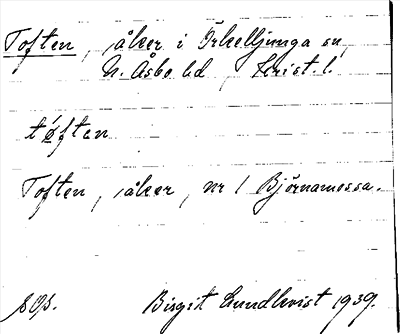 Toften, åker i Örkelljunga sn,
N. Åsbo hd, Krist. l.
tøften
Toften, åker, nr 1 Björnamossa.
Birgit Lundkvist 1939.